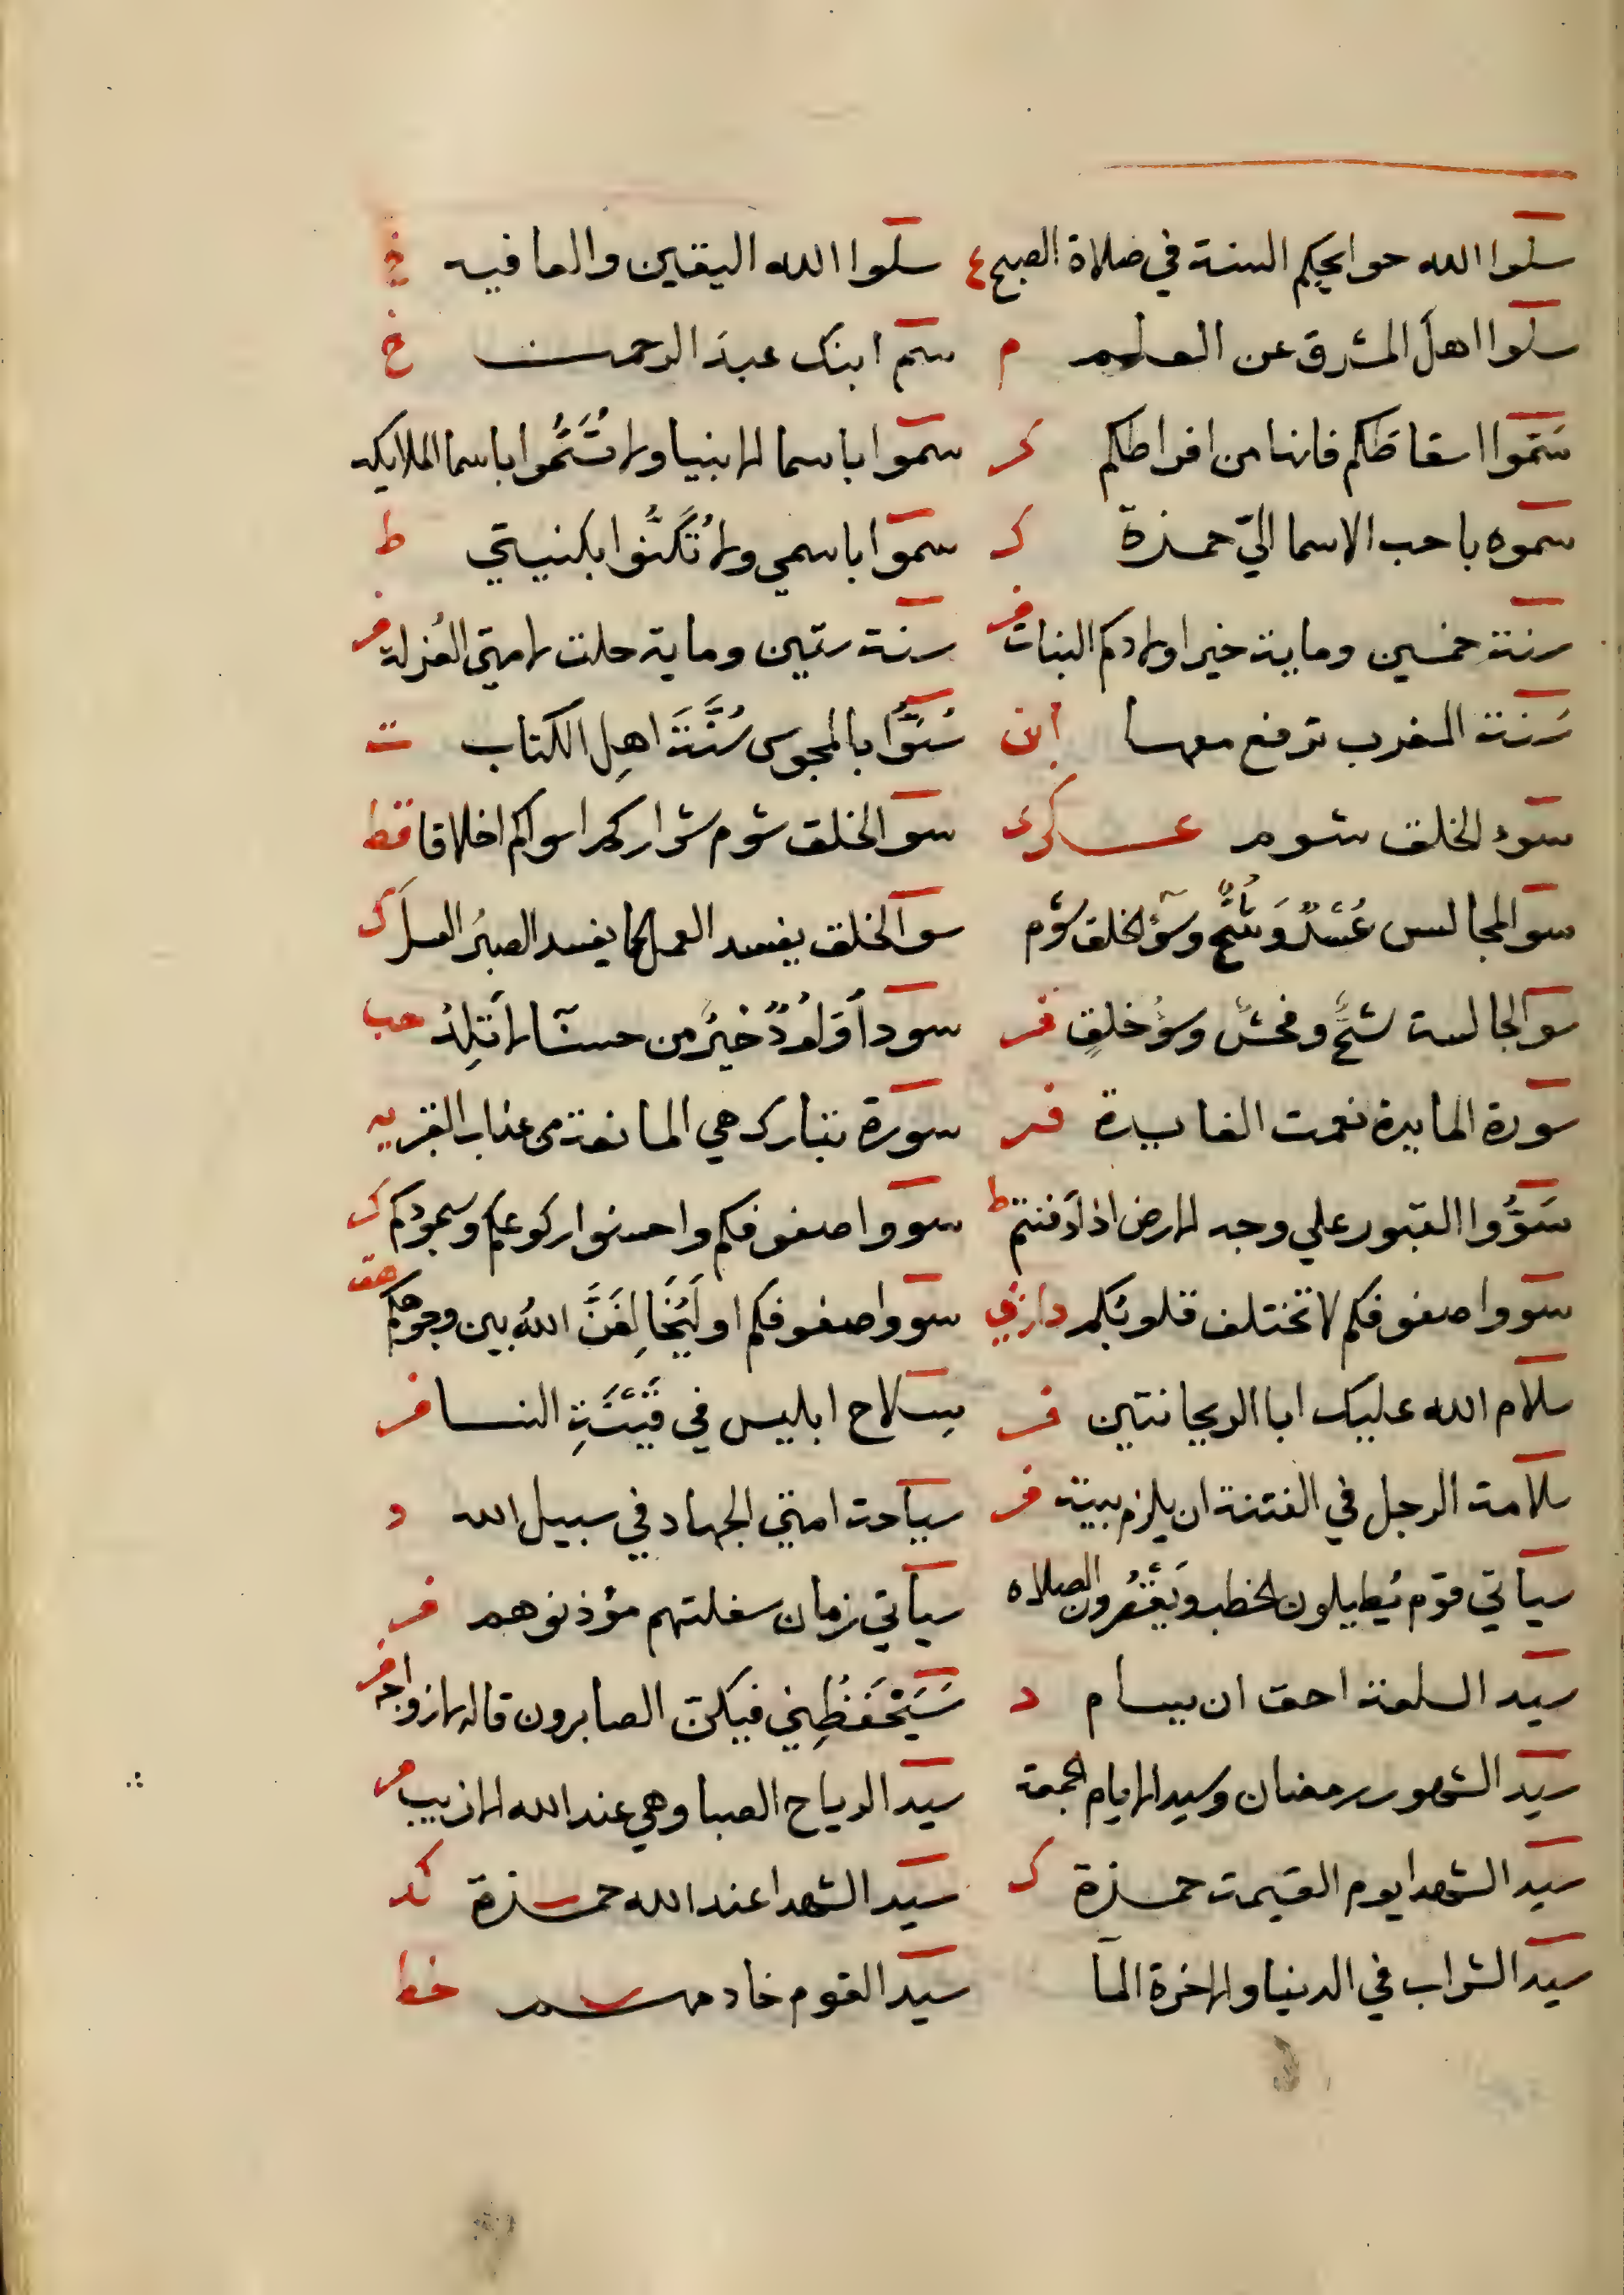 سلوا الله حوايجكم البتة في صلاة الصبح ع سلوا الله اليقين والعافيه خ
سلوا اهل المشرق عن العلم م سم ابنك عبد الرحمن خ
سَمّوا اسقاطكم فانها من افراطكم كر سموا باسما الانبيا ولا تُسَمُّوا باسما الملايكه
سموه باحب الاسما اليّ حمزة ك سموا باسمي ولا تُكَنُّوا بكنيتي ط
سنة خمسين وماية خير اولادكم البنات فر سنة ستين وماية حلت لامتي العُزلة فر
سَنة المغرب ترفع معها ابن سُنّوا بالمجوس سُنَّةَ اهلِ الكتاب ت
سوء الخلق شوم عساكري سو الخلق شوم شواركم اسواكم اخلاقا قط
سو المجالس وشُحٌّ وسؤ الخلق شؤم سو الخلق يفسد العمل كما يفسد الصبرُ العسلَ ك
سو المجالسة شحٌّ وفحشٌ وسؤُ خلقٍ فر سودآ وَلُودٌ خيرٌ من حسنآ لا تَلِدُ حب
سورة المايدة نعمت الفايدة فر سورة تبارك هي المانعة من عذاب القبر يه
سَوُّوا القبور علي وجه الارض اذا دفنتم ط سووا صفوفكم واحسنوا ركوعكم وسجودكم ك
سووا صفوفكم لا تختلف قلوبُكم دارمي سووا صفوفكم او لَيُخَالِفَنَّ اللهُ بين وجوهكم هق
سلام الله عليك ابا الريحانتين فر سلاح ابليس في النسا فر
سلامة الرجل في الفتنة ان يلزم بيته فر سياحة امتي الجهاد في سبيل الله د
سياتي قوم يُطيلون الخطب ويَقْصُرون الصلاه سياتي زمان سفلتهم مؤذنوهم فر
سيد السلعة احق ان يسام د سَيَحْفَظُنِي فيكن الصابرون قاله لازواجه فر
سيد الشهور رمضان وسيد الايام الجمعة سيد الرياح الصبا وهي عند الله الازيب فر
سيد الشهدا يوم القيمة حمزة ك سيد الشهدا عند الله حمزة كد
سيد الشراب في الدنيا والاخرة المآ سيد القوم خادمهم خط